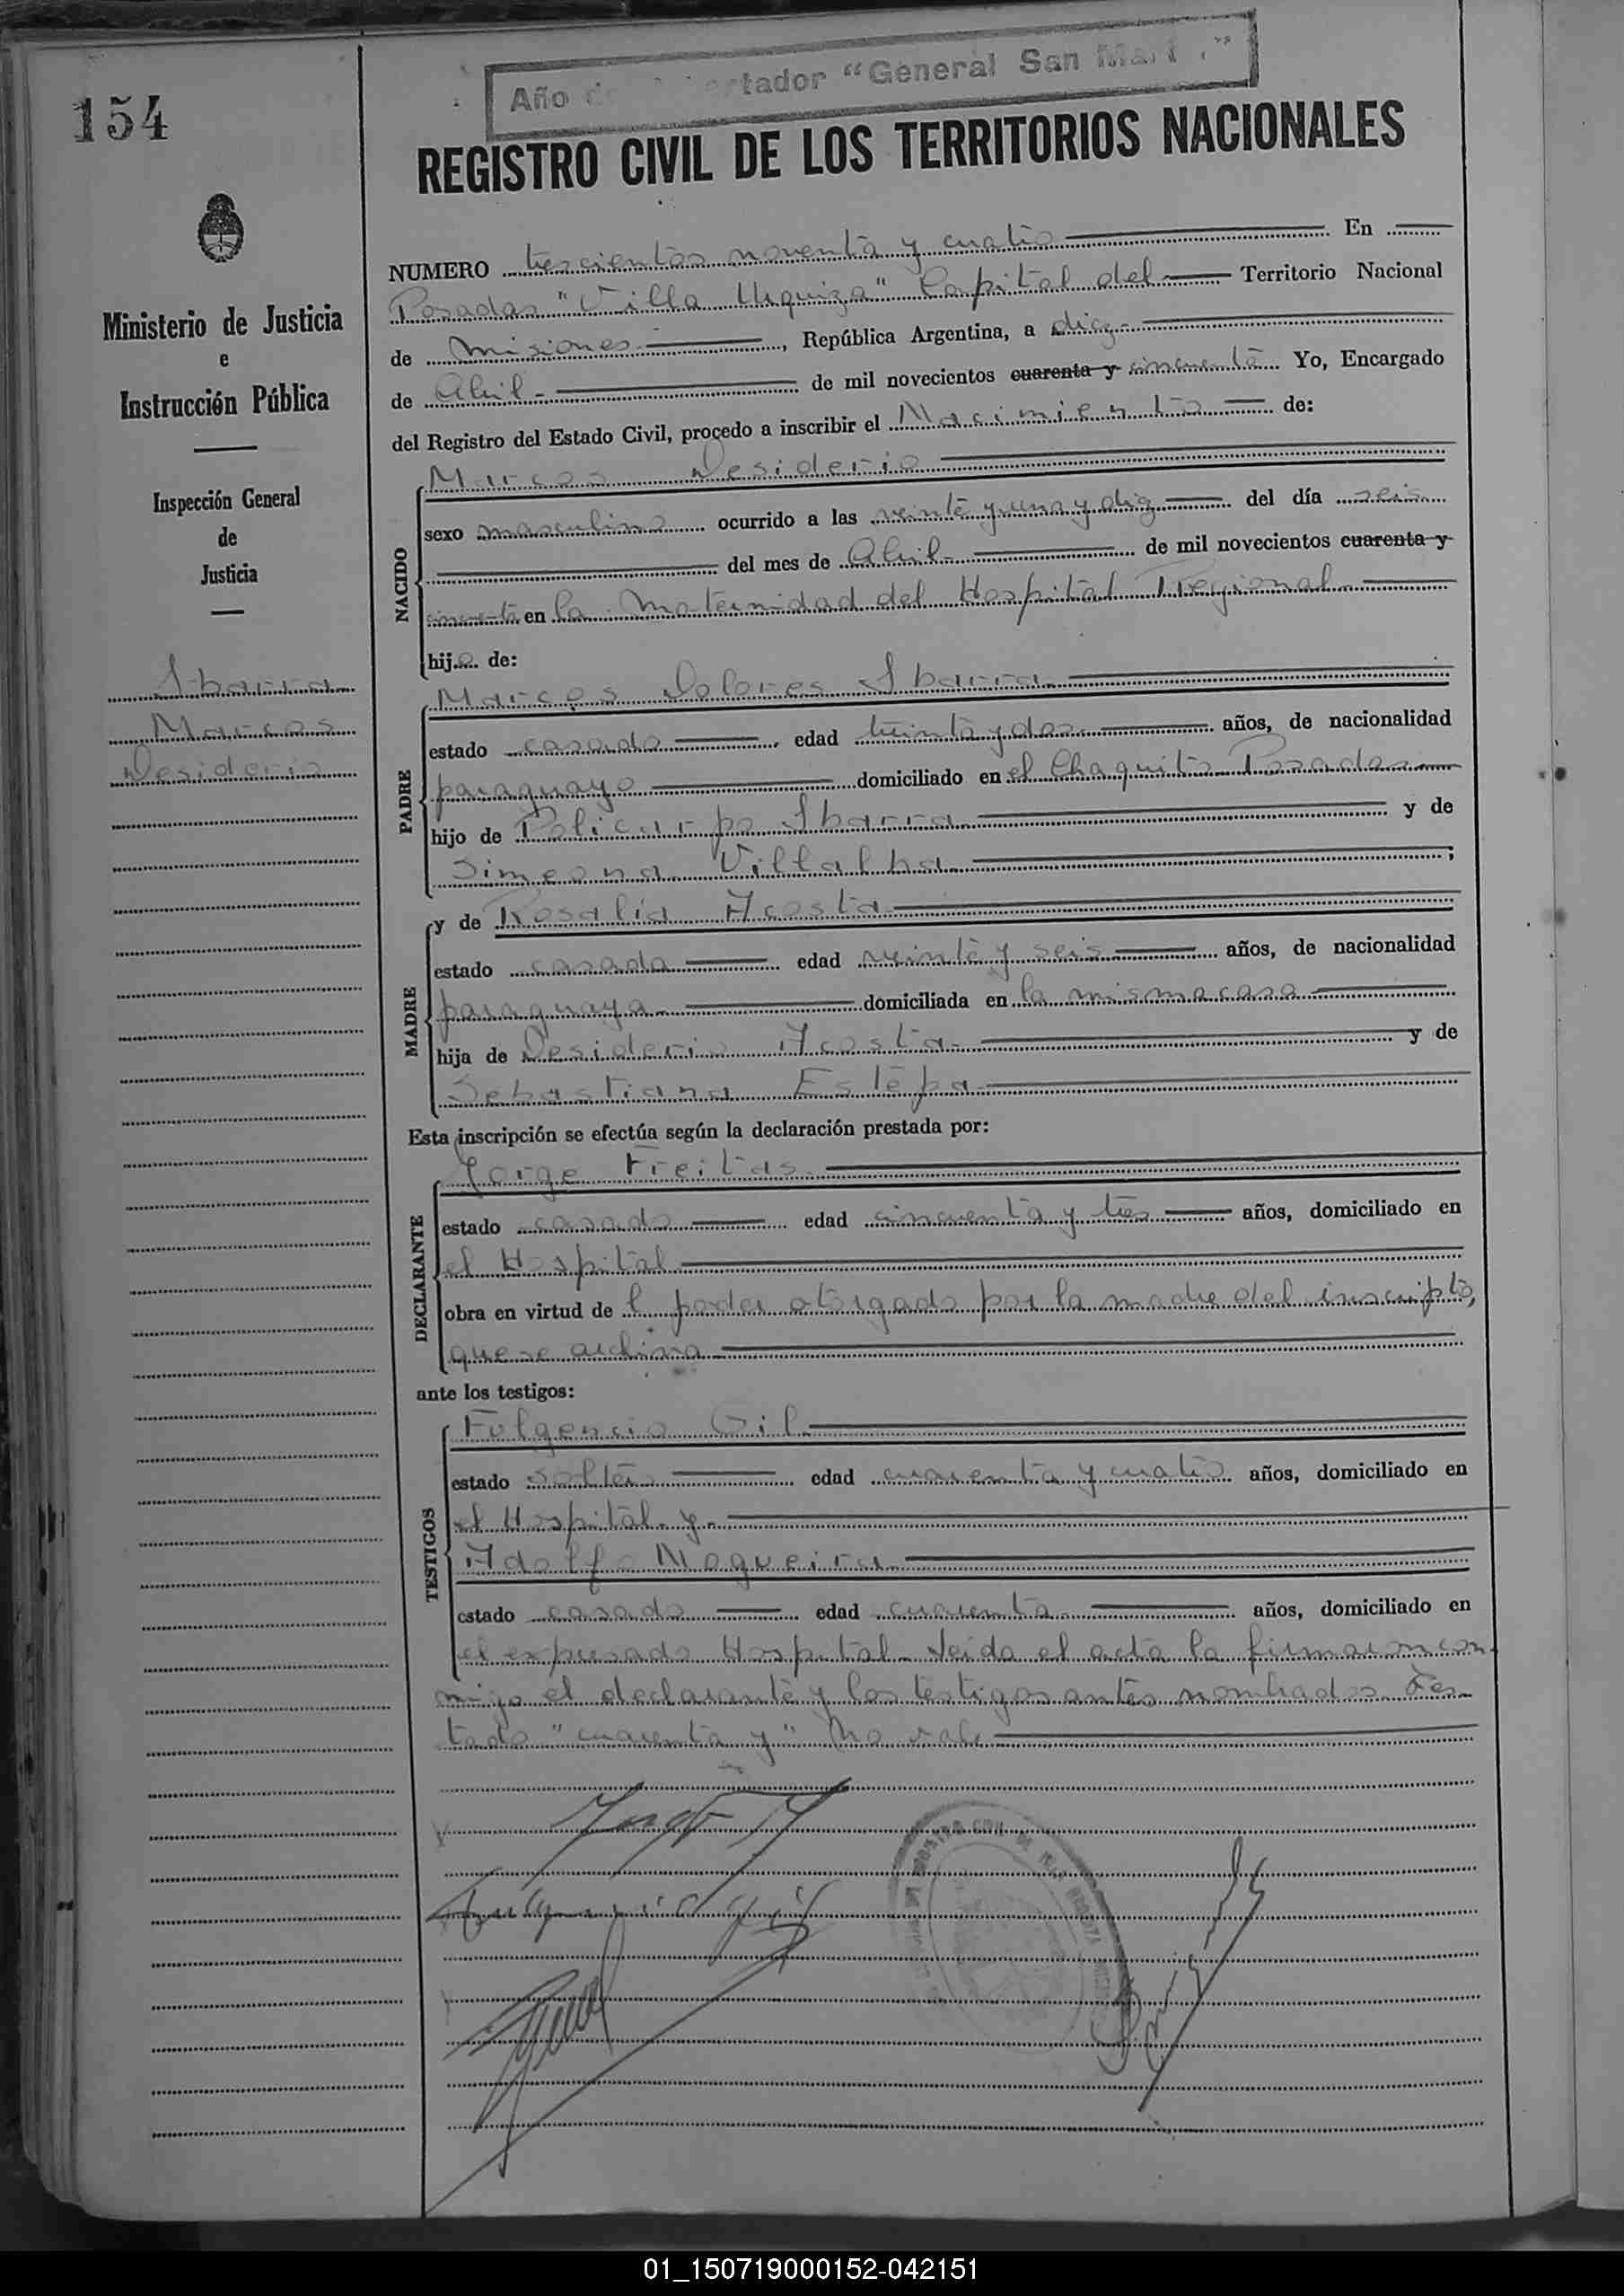 Año de ertador “General San Mart ”
154
REGISTRO CIVIL DE LOS TERRITORIOS NACIONALES
Ministerio de Justicia
e
Instrucción Pública
Inspección General
de
Justicia
Ibarra
Marcos
Desiderio
NUMERO trescientos noventa y cuatro En
Posadas "Villa Urquiza" Capital del Territorio Nacional
de Misiones, República Argentina, a diez
de Abril de mil novecientos cuarenta y cincuenta Yo, Encargado
del Registro del Estado Civil, procedo a inscribir el Nacimiento de:
NACIDO
Marcos Desiderio
sexo masculino ocurrido a las veinte y una y diez del día seis
del mes de Abril de mil novecientos cuarenta y
cincuenta en la Maternidad del Hospital Regional
hijo de:
PADRE
Marcos Dolores Ibarra
estado casado, edad treinta y dos años, de nacionalidad
paraguayo domiciliado en el Chaquito Posadas
hijo de Policarpo Ibarra y de
Simeona Villalba;
MADRE
y de Rosalía Acosta
estado casada edad veinte y seis años, de nacionalidad
paraguaya domiciliada en la misma casa
hija de Desiderio Acosta y de
Sebastiana Estepa
Esta inscripción se efectúa según la declaración prestada por:
DECLARANTE
Jorge Freitas
estado casado edad cincuenta y tres años, domiciliado en
el Hospital
obra en virtud de l poder otorgado por la madre del inscripto,
que se archiva
ante los testigos:
TESTIGOS
Fulgencio Gil
estado soltero edad cuarenta y cuatro años, domiciliado en
el Hospital y
Adolfo Nogueira
estado casado edad cuarenta años, domiciliado en
el expresado Hospital. Leída el acta la firmaron con-
migo el declarante y los testigos antes nombrados. Tes-
tado "cuarenta y" No vale
Fulgencio Gil
01_150719000152-042151